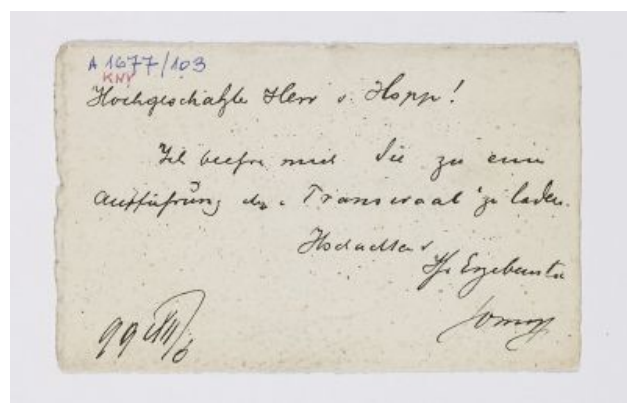 A 1677/103
KNY
Hochgeschätzte Herr v. Hopp!
Ich beehre mich Sie zu eine
Aufführung des „Transvaal" zu laden.
Hochachtend
Ihr Ergebenster
99 XII/6